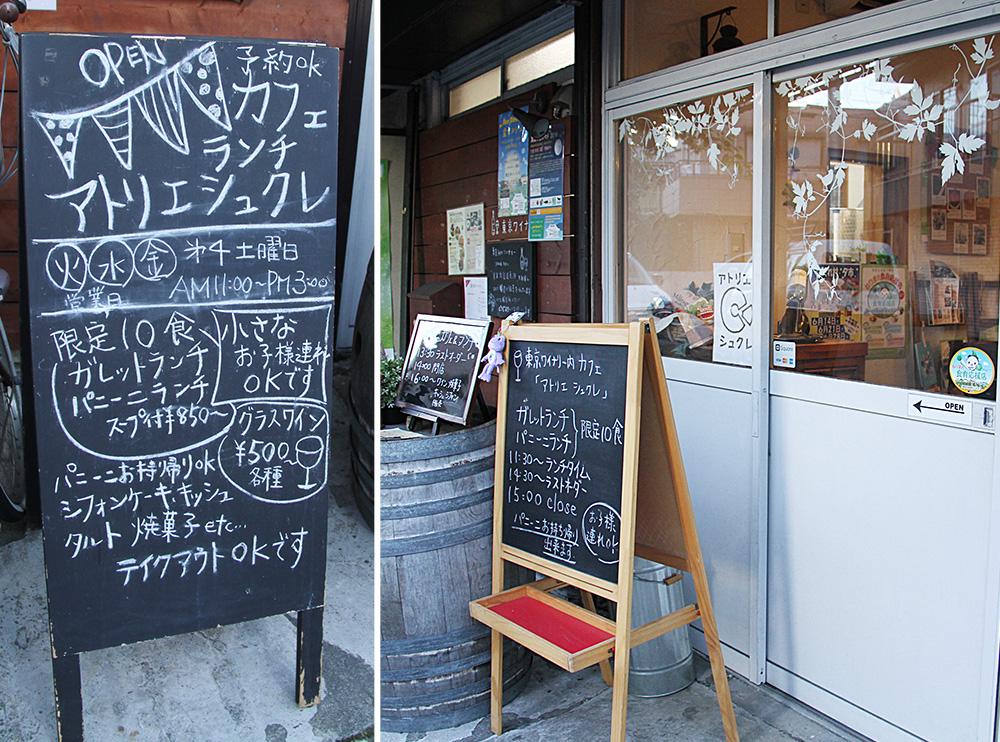 OPEN
予約OK
カフェ
ランチ
アトリエシュクレ
火 水 金 第4土曜日
営業日
AM11:00〜PM3:00
限定10食
ガレットランチ
パニーニランチ
スープ付¥850〜
小さな
お子様連れ
OKです
グラスワイン
¥500〜
各種
パニーニお持帰りOK
シフォンケーキ、キッシュ
タルト 焼菓子etc…
テイクアウトOKです
東京ワイナリー内カフェ
「アトリエシュクレ」
ガレットランチ
パニーニランチ
限定10食
11:30〜ランチタイム
14:30〜ラストオーダー
15:00 close
パニーニお持ち帰り
出来ます。
お子様
連れOK!
13:30ラストオーダー
14:00閉店
16:00〜
東京ワイナ
アトリエ
シュクレ
6月14日
6月21日
Square
食育応援店
OPEN